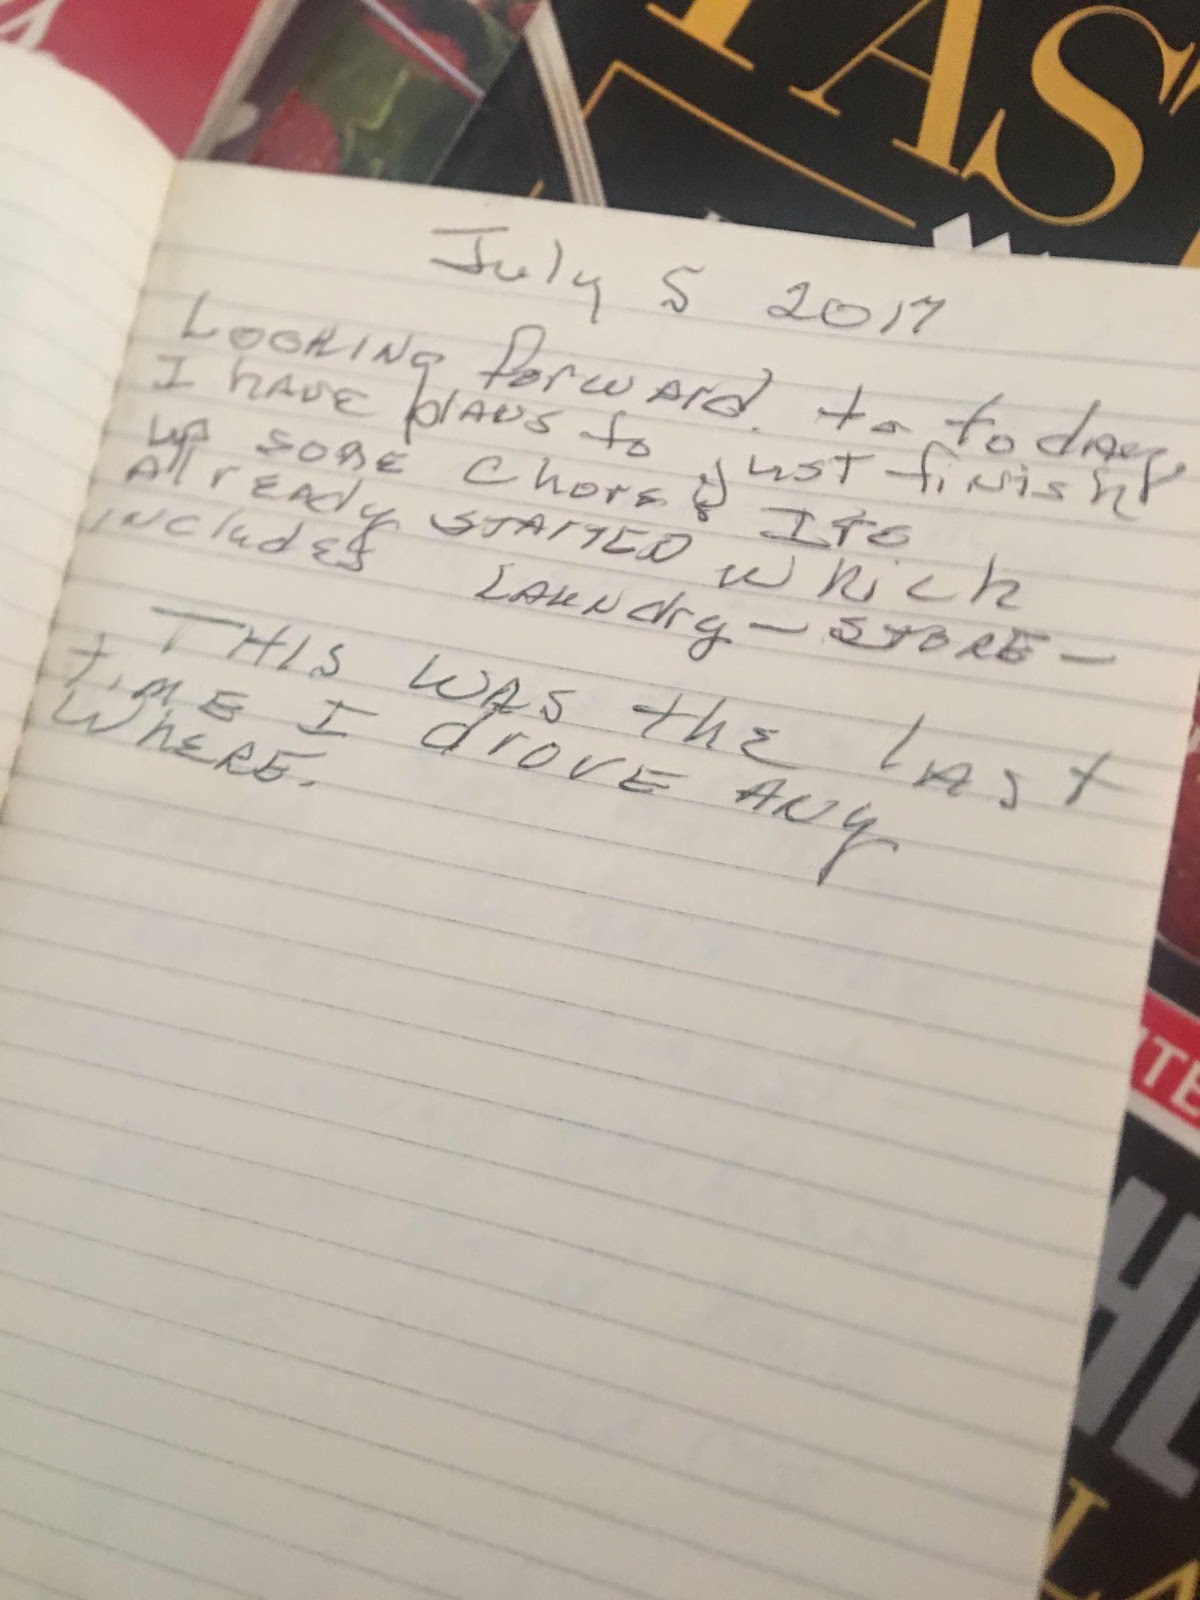 TAST
July 5 2017
LOOKING forward. to today.
I have plans to just finish
up some chores
Already STARTED which
includes LAUNdry - STORE -
THIS WAS the last
time I drove ANY
WhERE.
ITE